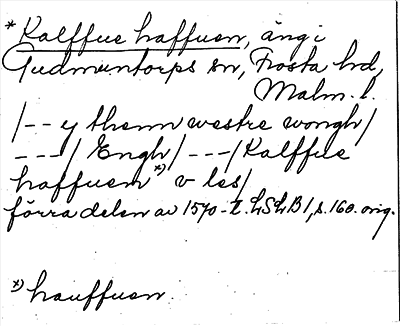 * Kalffue haffuen, äng i
Gudmuntorps sn, Frosta hd,
Malm. l.
/-- y thenn westre wongh/
---/ Engh/ ---/ Kalffue
haffuen *) v les/
förra delen av 1570-t. LSLB 1, s. 160. orig.
*) hauffuen.